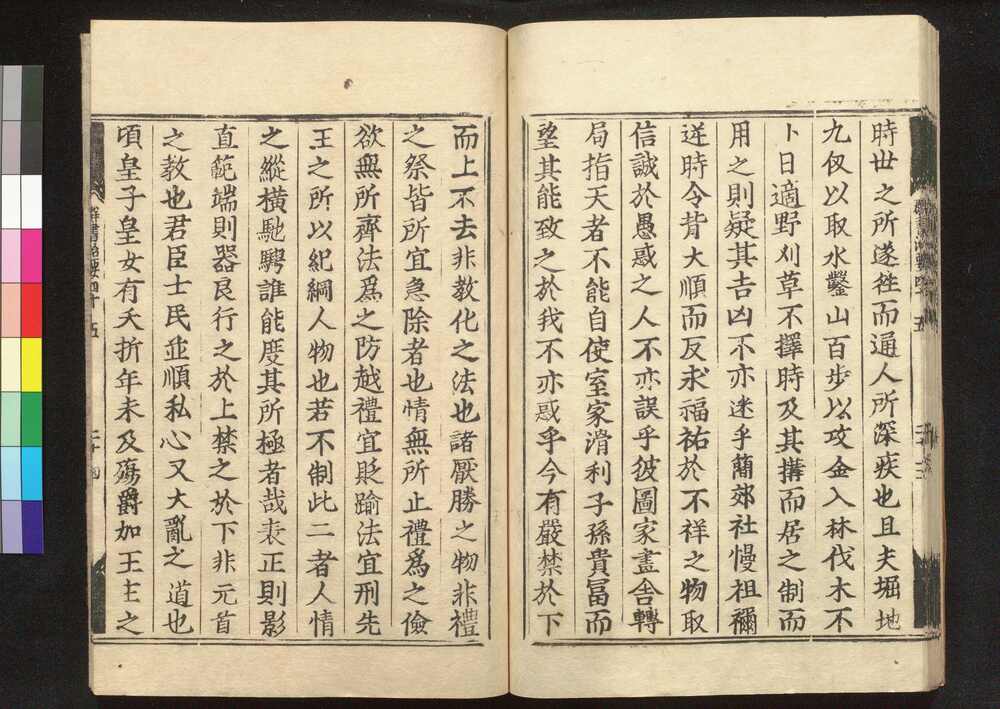 時世之所遂徃而通人所深疾也且夫堀地
九仭以取水鑿山百步以攻金入林伐木不
卜日適野刈草不擇時及其搆而居之制而
用之則疑其吉凶不亦迷乎蕳郊社慢祖禰
逆時令背大順而反求福祐於不祥之物取
信誠於愚惑之人不亦誤乎彼圖家畫舍轉
局指天者不能自使室家滑利子孫貴冨而
望其能致之於我不亦惑乎今有嚴禁於下
而上不去非教化之法也諸厭勝之物非禮
之祭皆所宜急除者也情無所止禮爲之儉
欲無所齊法爲之防越禮宜貶踰法宜刑先
王之所以紀綱人物也若不制此二者人情
之縱橫馳騁誰能度其所極者哉表正則影
直範端則器良行之於上禁之於下非元首
之教也君臣士民並順私心又大亂之道也
頃皇子皇女有夭折年未及殤爵加王主之
群書治要四十五